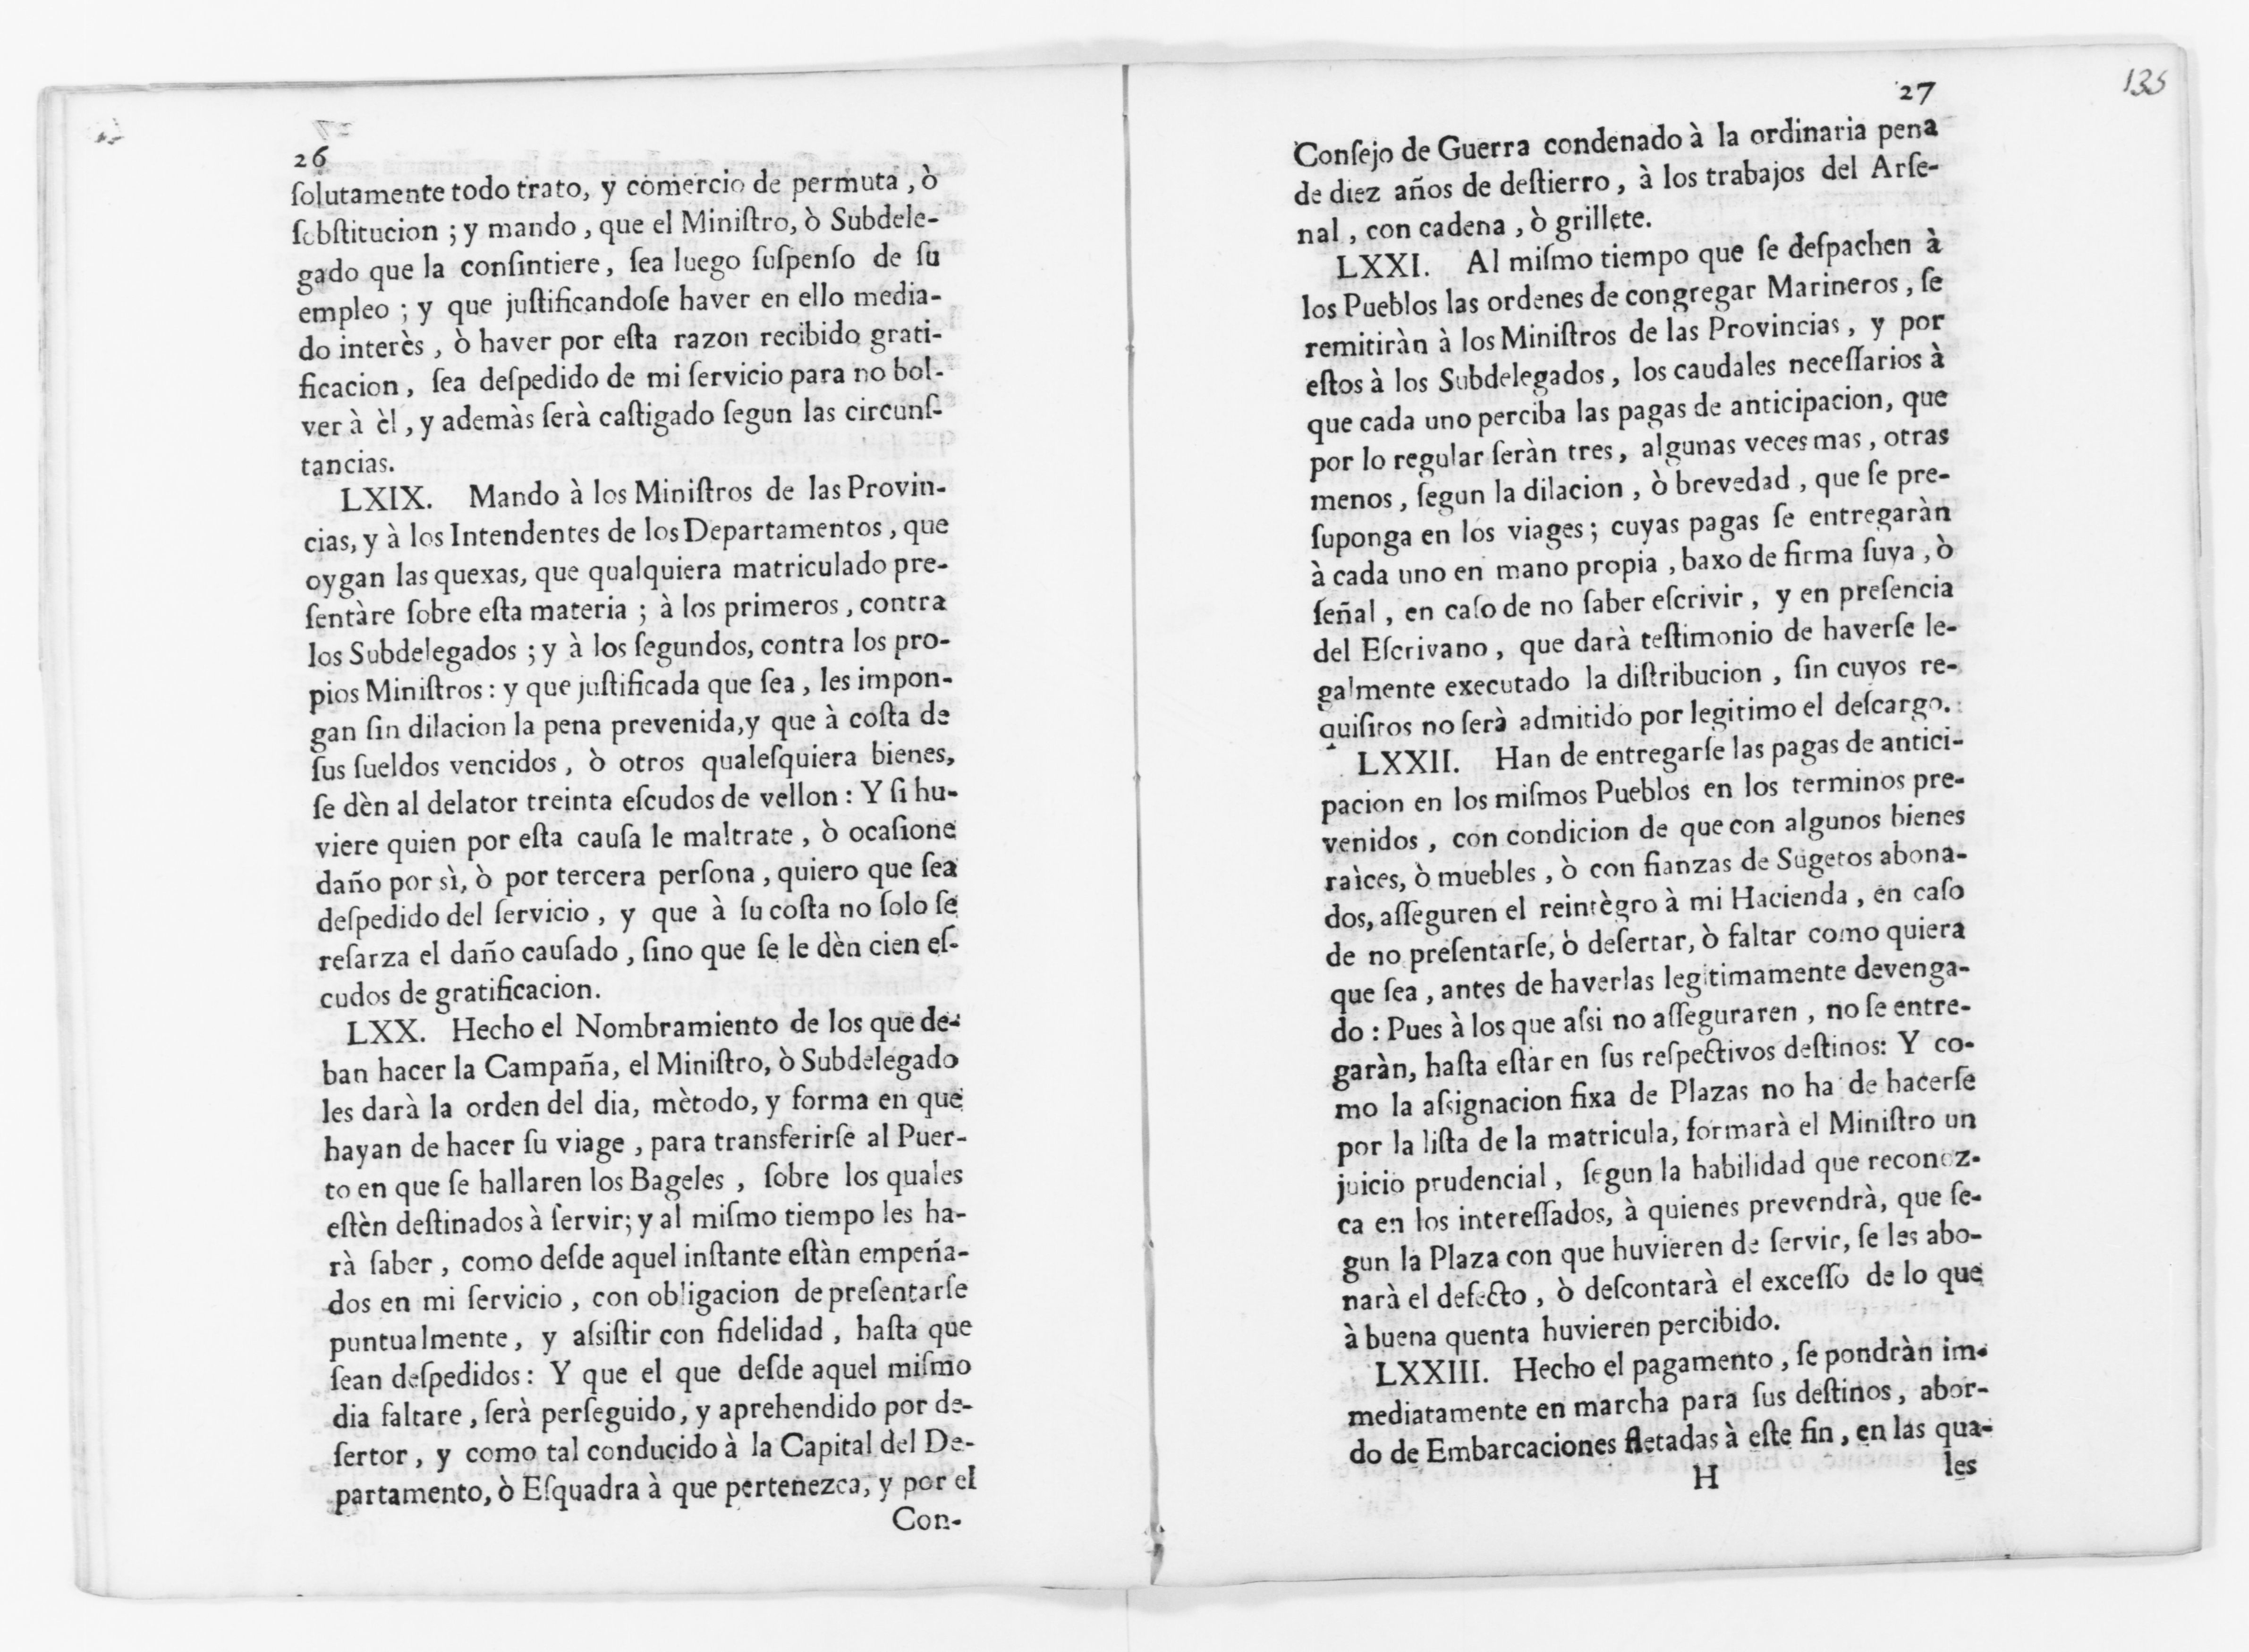 26
ſolutamente todo trato, y comercio de permuta, ò
ſobſtitucion; y mando, que el Miniſtro, ò Subdele-
gado que la conſintiere, ſea luego ſuſpenſo de ſu
empleo; y que juſtificandoſe haver en ello media-
do interès, ò haver por eſta razon recibido grati-
ficacion, ſea deſpedido de mi ſervicio para no bol-
ver à èl, y ademàs ſerà caſtigado ſegun las circunſ-
tancias.
LXIX. Mando à los Miniſtros de las Provin-
cias, y à los Intendentes de los Departamentos, que
oygan las quexas, que qualquiera matriculado pre-
ſentàre ſobre eſta materia; à los primeros, contra
los Subdelegados; y à los ſegundos, contra los pro-
pios Miniſtros: y que juſtificada que ſea, les impon-
gan ſin dilacion la pena prevenida, y que à coſta de
ſus ſueldos vencidos, ò otros qualeſquiera bienes,
ſe dèn al delator treinta eſcudos de vellon: Y ſi hu-
viere quien por eſta cauſa le maltrate, ò ocaſione
daño por sì, ò por tercera perſona, quiero que ſea
deſpedido del ſervicio, y que à ſu coſta no ſolo ſe
reſarza el daño cauſado, ſino que ſe le dèn cien eſ-
cudos de gratificacion.
LXX. Hecho el Nombramiento de los que de-
ban hacer la Campaña, el Miniſtro, ò Subdelegado
les darà la orden del dia, mètodo, y forma en que
hayan de hacer ſu viage, para transferirſe al Puer-
to en que ſe hallaren los Bageles, ſobre los quales
eſtèn deſtinados à ſervir; y al miſmo tiempo les ha-
rà ſaber, como deſde aquel inſtante eſtàn empeña-
dos en mi ſervicio, con obligacion de preſentarſe
puntualmente, y aſsiſtir con fidelidad, haſta que
ſean deſpedidos: Y que el que deſde aquel miſmo
dia faltare, ſerà perſeguido, y aprehendido por de-
ſertor, y como tal conducido à la Capital del De-
partamento, ò Eſquadra à que pertenezca, y por el
Con-
27
135
Conſejo de Guerra condenado à la ordinaria pena
de diez años de deſtierro, à los trabajos del Arſe-
nal, con cadena, ò grillete.
LXXI. Al miſmo tiempo que ſe deſpachen à
los Pueblos las ordenes de congregar Marineros, ſe
remitiràn à los Miniſtros de las Provincias, y por
eſtos à los Subdelegados, los caudales neceſſarios à
que cada uno perciba las pagas de anticipacion, que
por lo regular ſeràn tres, algunas veces mas, otras
menos, ſegun la dilacion, ò brevedad, que ſe pre-
ſuponga en los viages; cuyas pagas ſe entregaràn
à cada uno en mano propia, baxo de firma ſuya, ò
ſeñal, en caſo de no ſaber eſcrivir, y en preſencia
del Eſcrivano, que darà teſtimonio de haverſe le-
galmente executado la diſtribucion, ſin cuyos re-
quiſitos no ſerà admitido por legitimo el deſcargo.
LXXII. Han de entregarſe las pagas de antici-
pacion en los miſmos Pueblos en los terminos pre-
venidos, con condicion de que con algunos bienes
raìces, ò muebles, ò con fianzas de Sugetos abona-
dos, aſſeguren el reintègro à mi Hacienda, en caſo
de no preſentarſe, ò deſertar, ò faltar como quiera
que ſea, antes de haverlas legitimamente devenga-
do: Pues à los que aſsi no aſſeguraren, no ſe entre-
garàn, haſta eſtàr en ſus reſpectivos deſtinos: Y co-
mo la aſsignacion fixa de Plazas no ha de hacerſe
por la liſta de la matricula, formarà el Miniſtro un
juicio prudencial, ſegun la habilidad que reconoz-
ca en los intereſſados, à quienes prevendrà, que ſe-
gun la Plaza con que huvieren de ſervir, ſe les abo-
narà el defecto, ò deſcontarà el exceſſo de lo que
à buena quenta huvieren percibido.
LXXIII. Hecho el pagamento, ſe pondràn im-
mediatamente en marcha para ſus deſtinos, abor-
do de Embarcaciones fletadas à eſte fin, en las qua-
H les